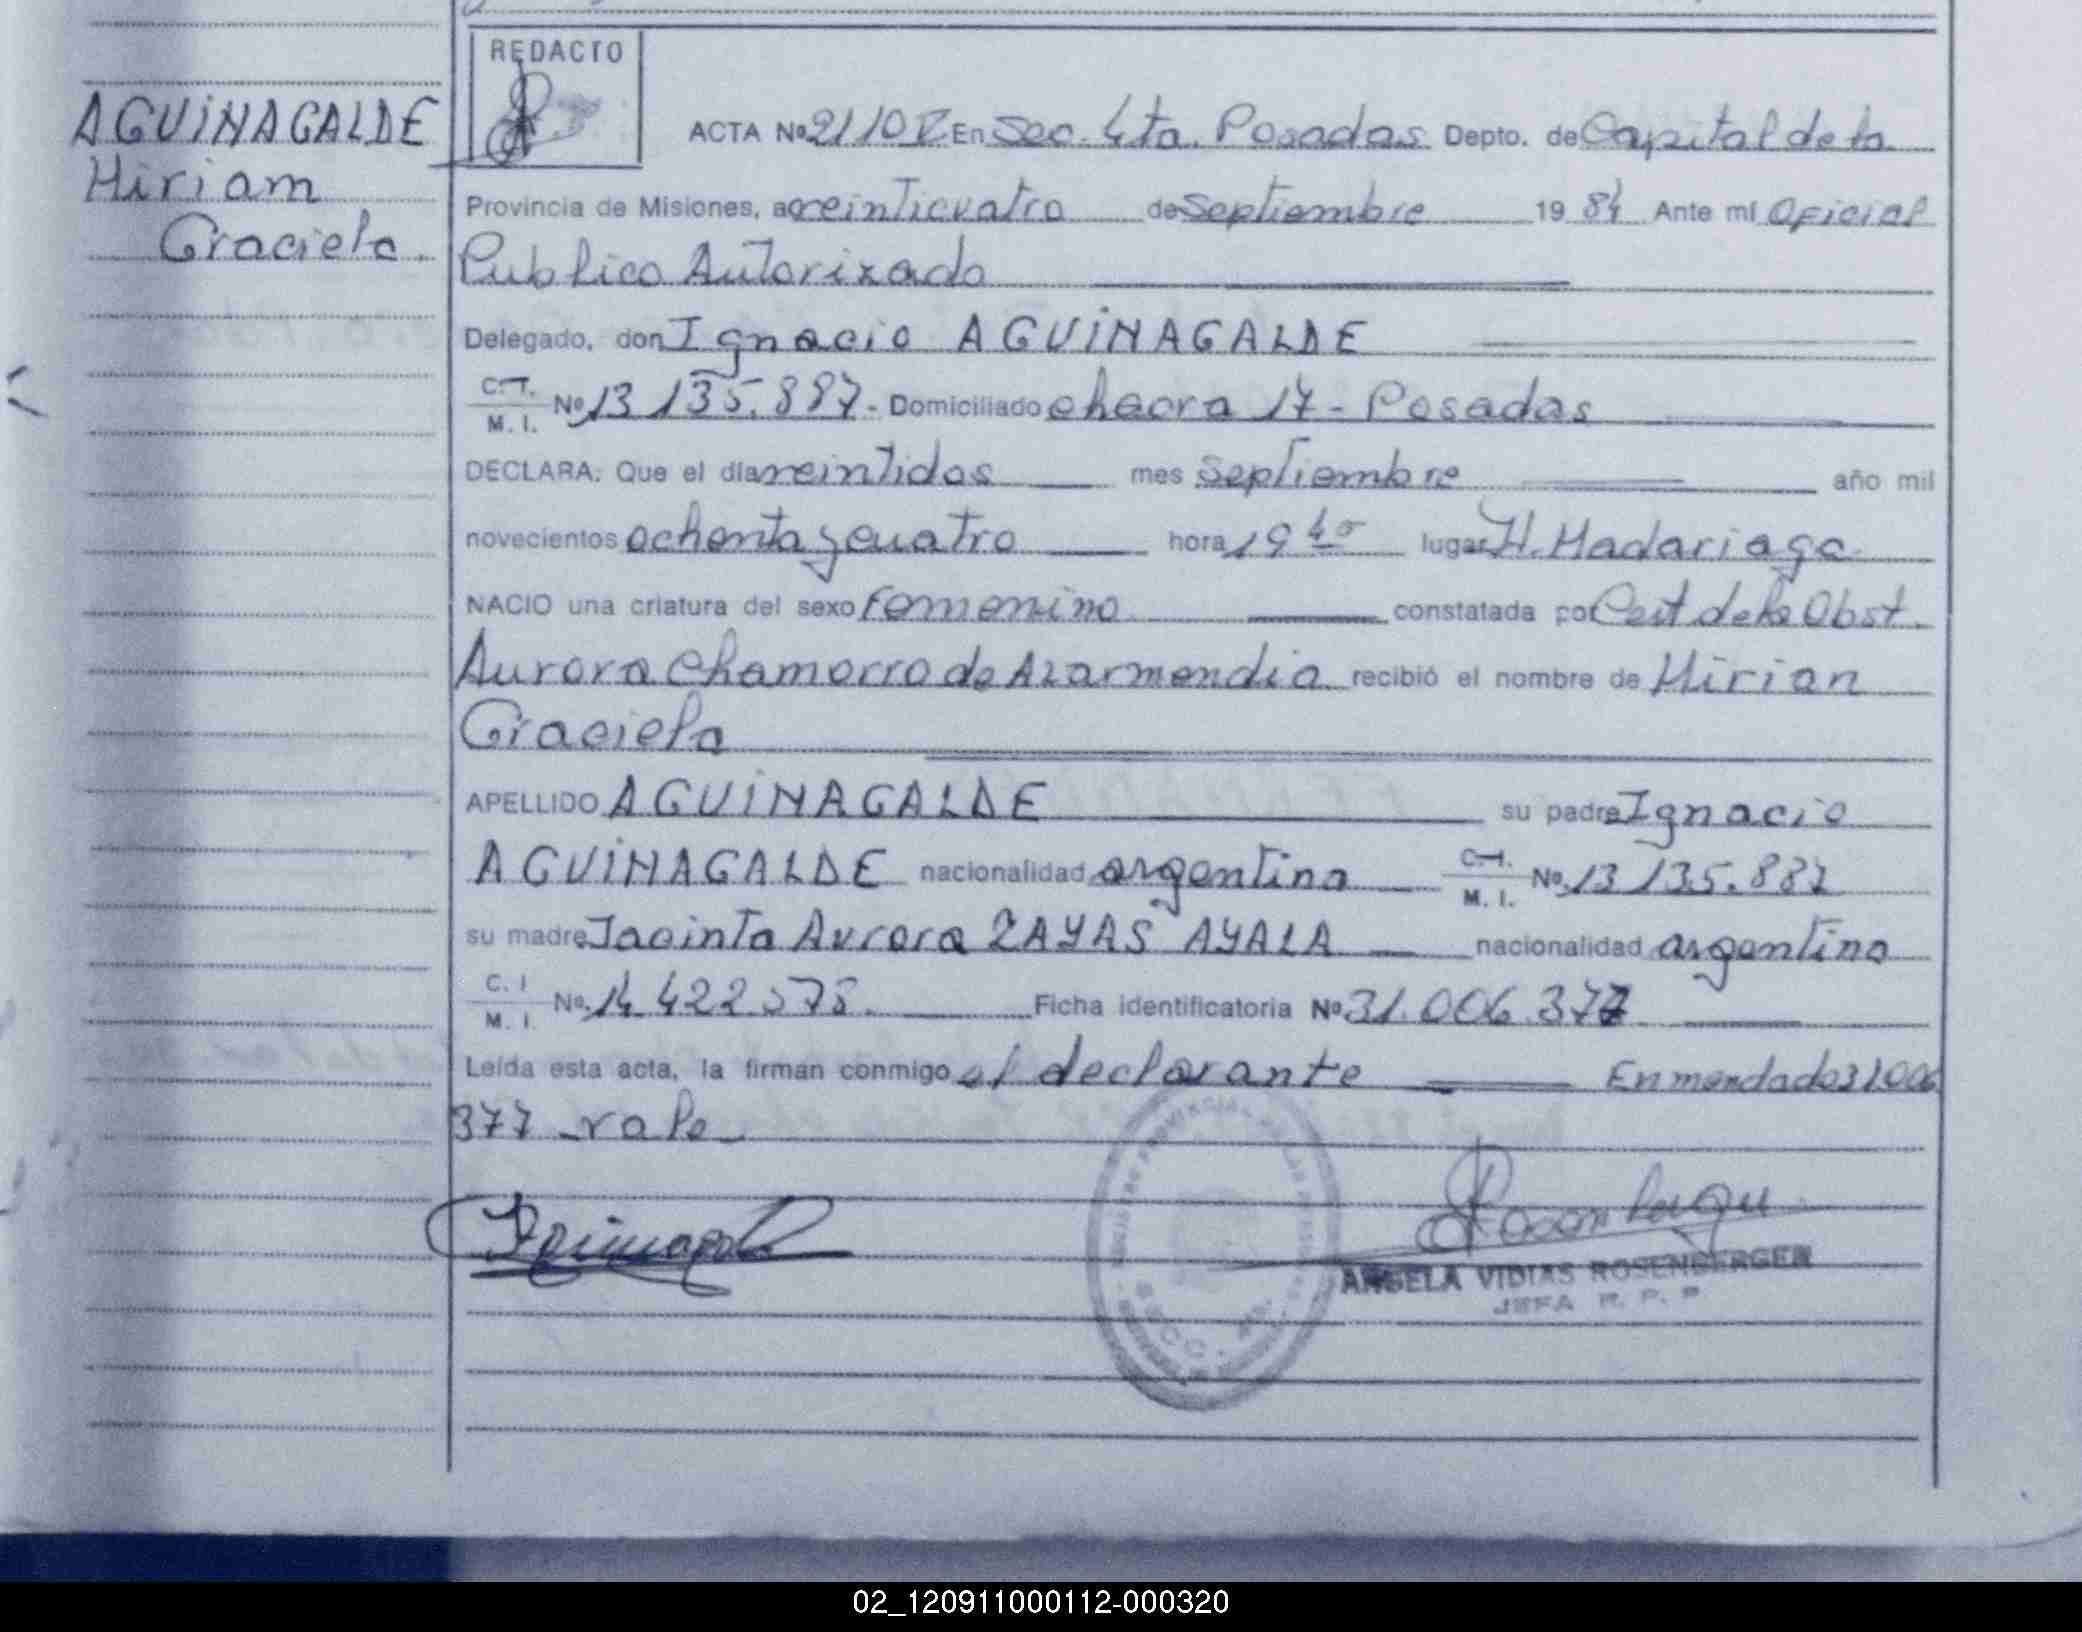 AGUINAGALDE
Miriam
Graciela.
REDACTO
ACTA Nº En Sec. 4ta. Posadas Depto. de Capital de la
Provincia de Misiones, a veinticuatro de Septiembre 19 84 Ante mí Oficial
Publico Autorizado
Delegado, don Ignacio AGUINAGALDE
C. I.
M. I. Nº 13 135.887- Domiciliado chacra 17 - Posadas
DECLARA: Que el día veintidos mes Septiembre año mil
novecientos ochenta y cuatro hora 19 40 lugar H. Madariaga
NACIO una criatura del sexo Femenino constatada por Cert de la Obst.
Aurora Chamorro de Azarmendia recibió el nombre de Mirian
Graciela
APELLIDO AGUINAGALDE su padre Ignacio
AGUINAGALDE nacionalidad argentina C. I.
M. I. Nº 13 135.887
su madre Jacinta Aurora ZAYAS AYALA nacionalidad argentina
C. I
M. I. Nº 14 422.578. Ficha identificatoria Nº 31.006.377
Leída esta acta, la firman conmigo el declarante Enmendado 31.006
377 vale
ANGELA VIDIAS ROSENBERGER
JEFA R. P. P
02_120911000112-000320